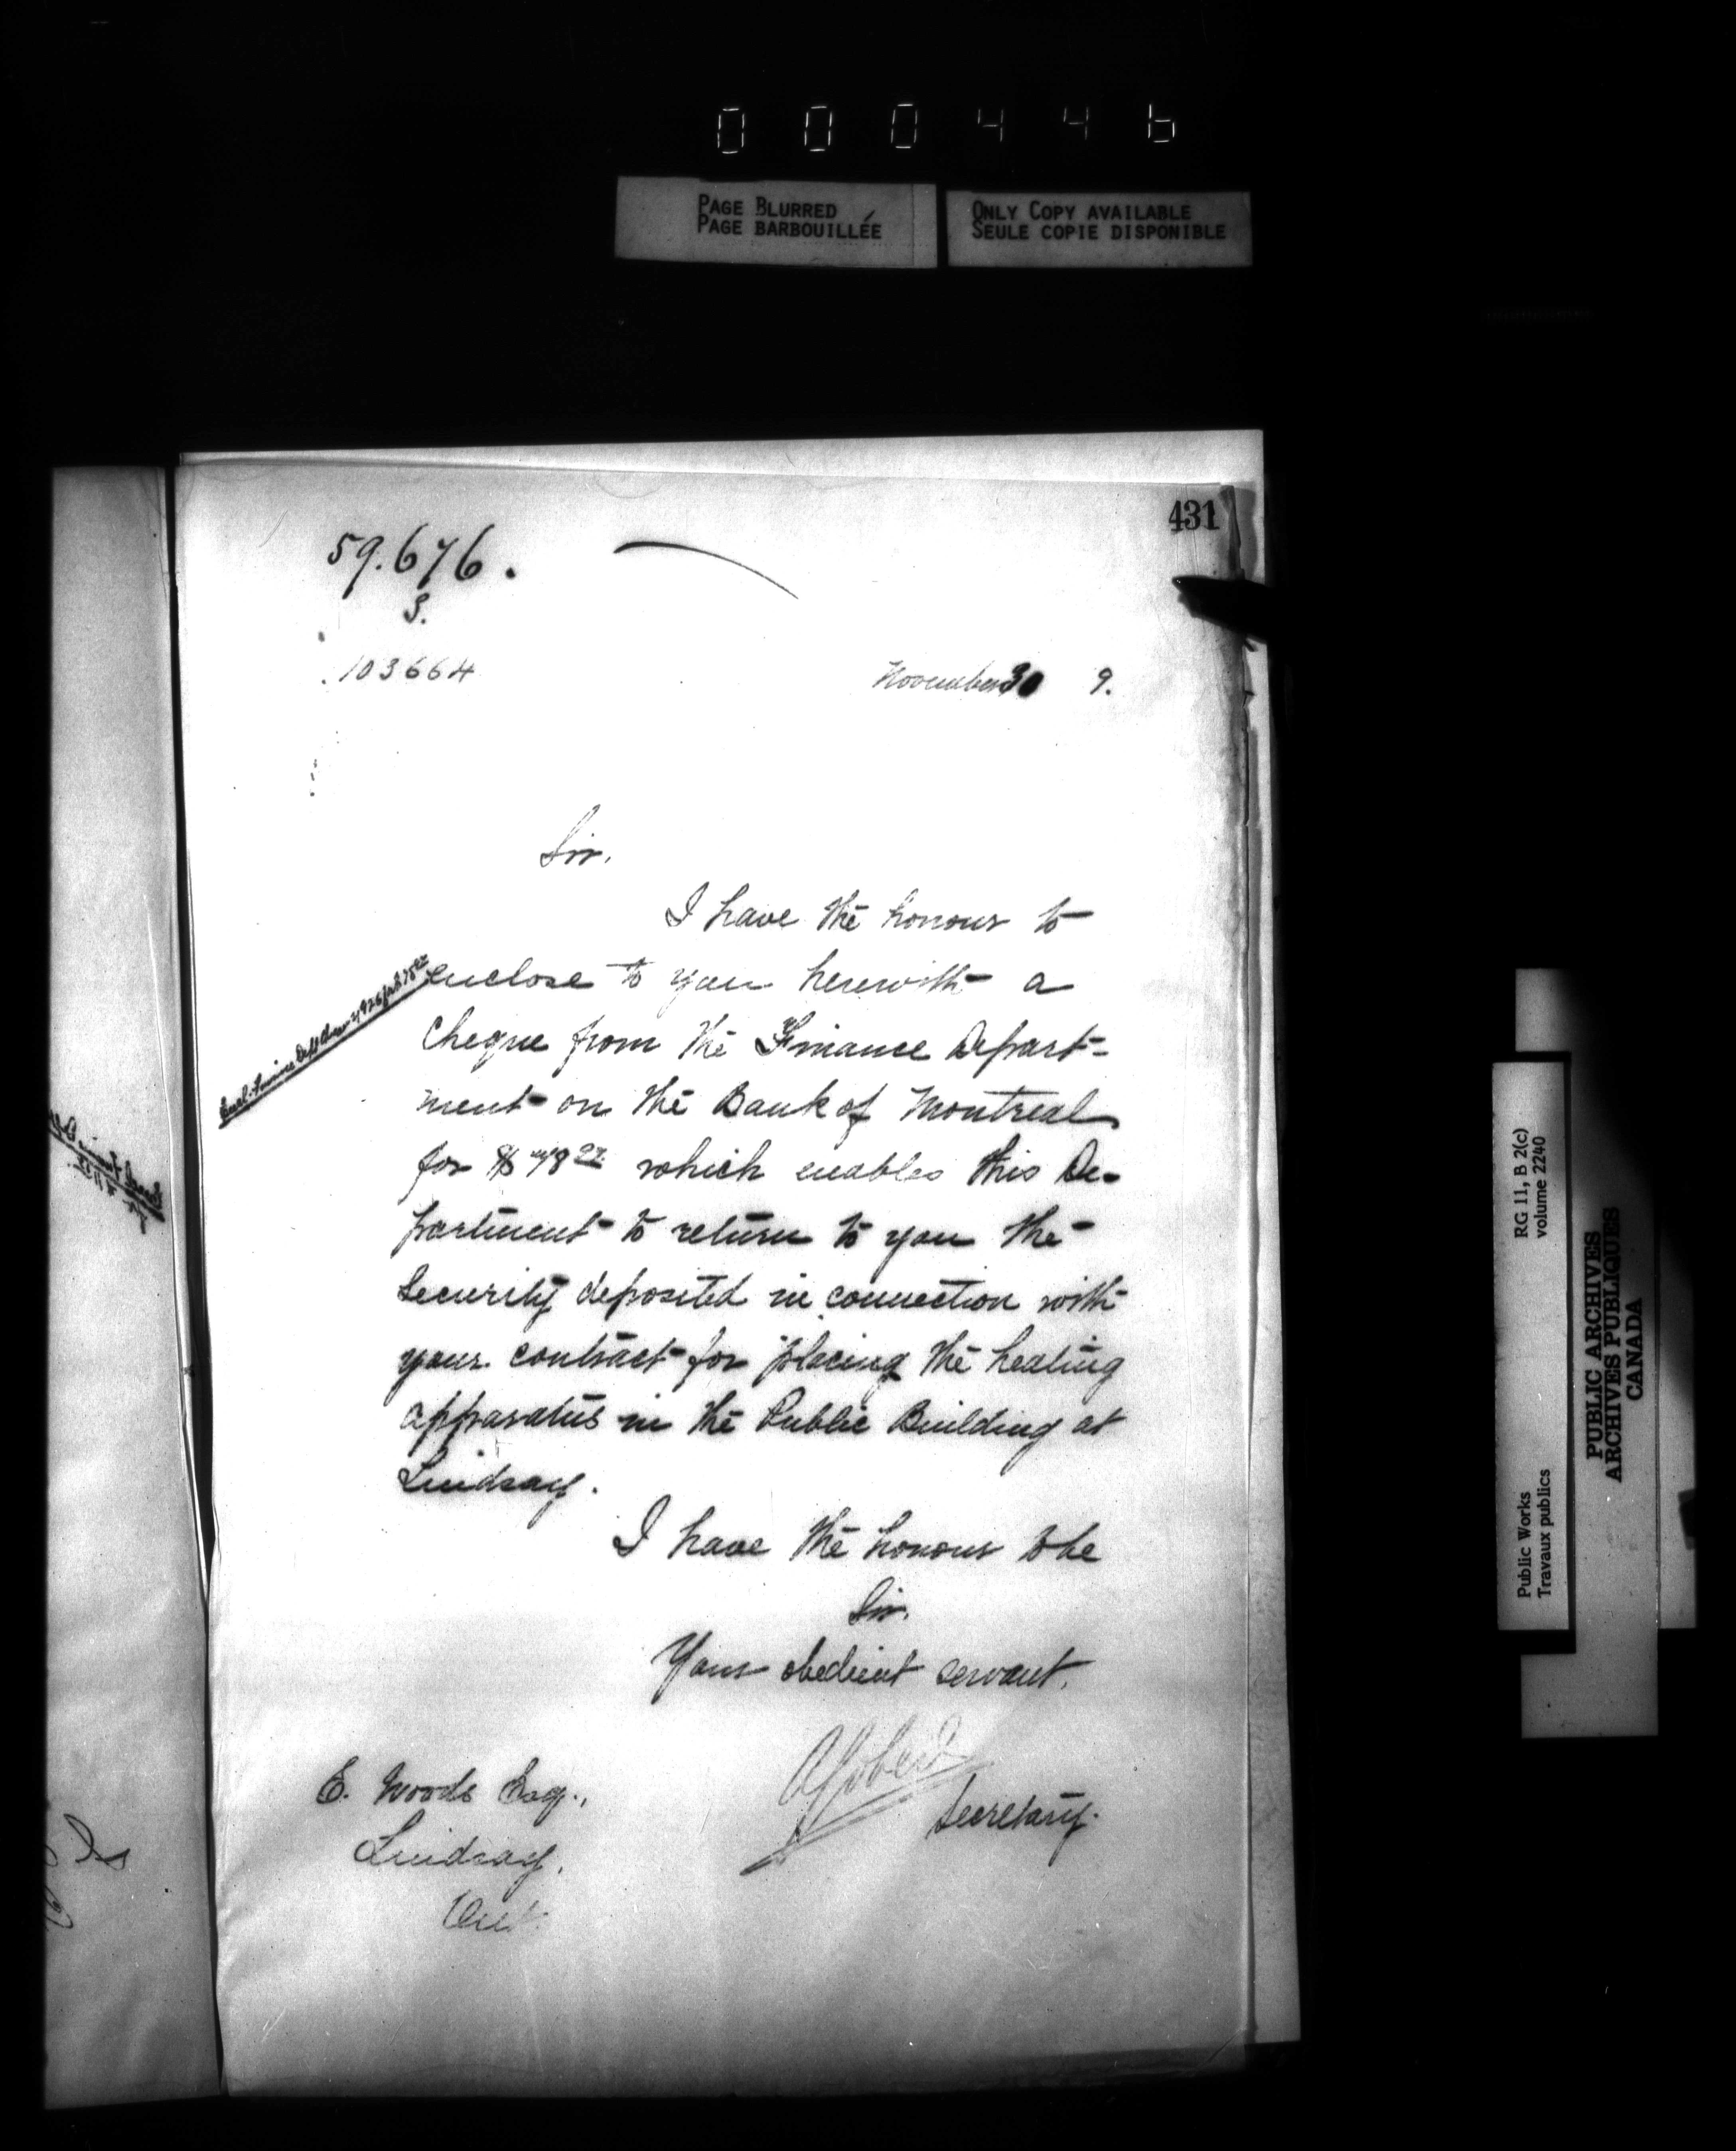 000446
PAGE BLURRED
PAGE BARBOUILLÉE
ONLY COPY AVAILABLE
SEULE COPIE DISPONIBLE
431
59.676.
S.
103664
November 30 9.
Sir,
I have the honour to
enclose to you herewith a
Cheque from the Finance Depart-
ment on the Bank of Montreal
for $ which enables this De-
partment to return to you the
Security deposited in connection with
your contract for placing the heating
apparatus in the Public Building at
Lindsay.
I have the honour to be
Sir,
Your obedient servant,
Secretary.
E. Woods Esq.,
Lindsay,
Ont.
Public Works
Travaux publics
RG 11, B 2(c)
volume 2240
PUBLIC ARCHIVES
ARCHIVES PUBLIQUES
CANADA